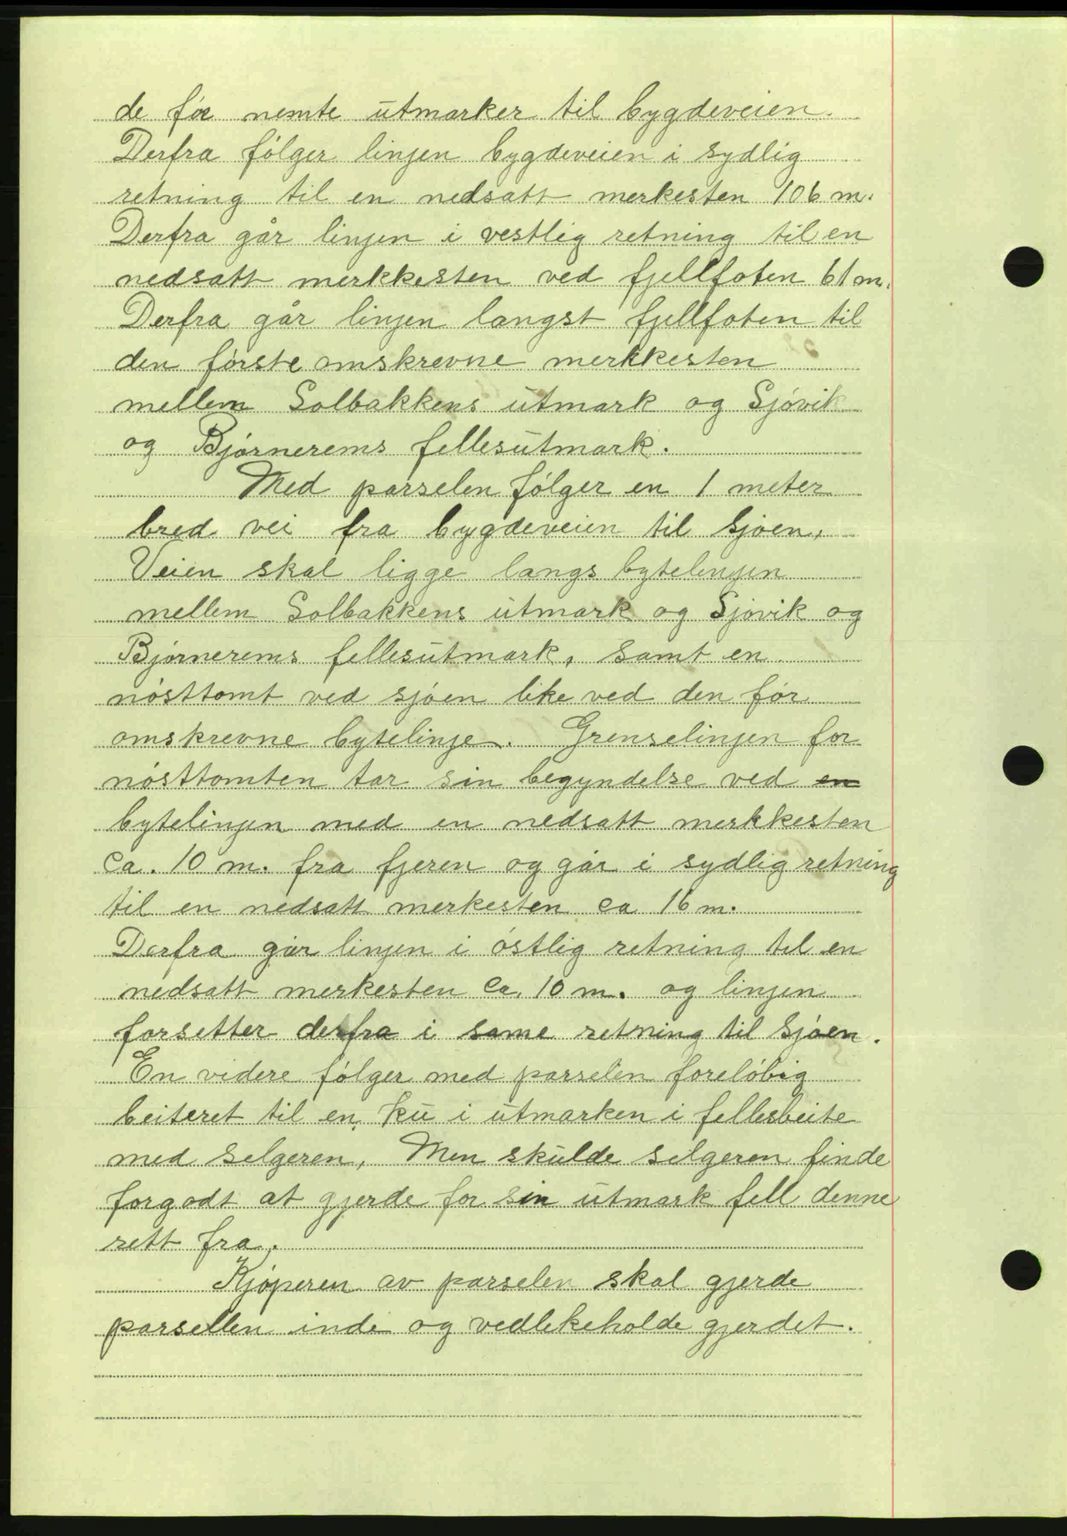 de før nemte utmarker til bygdeveien.
Derfra følger linjen bygdeveien i sydlig
retning til en nedsatt merkesten 106 m.
Derfra går linjen i vestlig retning til en
nedsatt merkkesten ved fjellfoten 61 m.
Derfra går linjen langst fjellfoten til
den første omskrevne merkkesten
mellem Solbakkens utmark og Sjøvik
og Bjørnerems fellesutmark.
Med parselen følger en 1 meter
bred vei fra bygdeveien til sjøen,
Veien skal ligge langs bytelinjen
mellem Solbakkens utmark og Sjøvik og
Bjørnerems fellesutmark, samt en
nøsttomt ved sjøen like ved den før
omskrevne bytelinje. Grenselinjen for
nøsttomten tar sin begyndelse ved en
bytelinjen med en nedsatt merkkesten
ca. 10 m. fra fjeren og går i sydlig retning
til en nedsatt merkesten ca 16 m.
Derfra går linjen i østlig retning til en
nedsatt merkesten ca. 10 m. og linjen
forsetter derfra i same retning til sjøen.
En videre følger med parselen foreløbig
beiteret til en ku i utmarken i fellesbeite
med selgeren, Men skulde selgeren finde
forgodt at gjerde for sin utmark fell denne
rett fra.
Kjøperen av parselen skal gjerde
parsellen inde og vedlikeholde gjerdet.